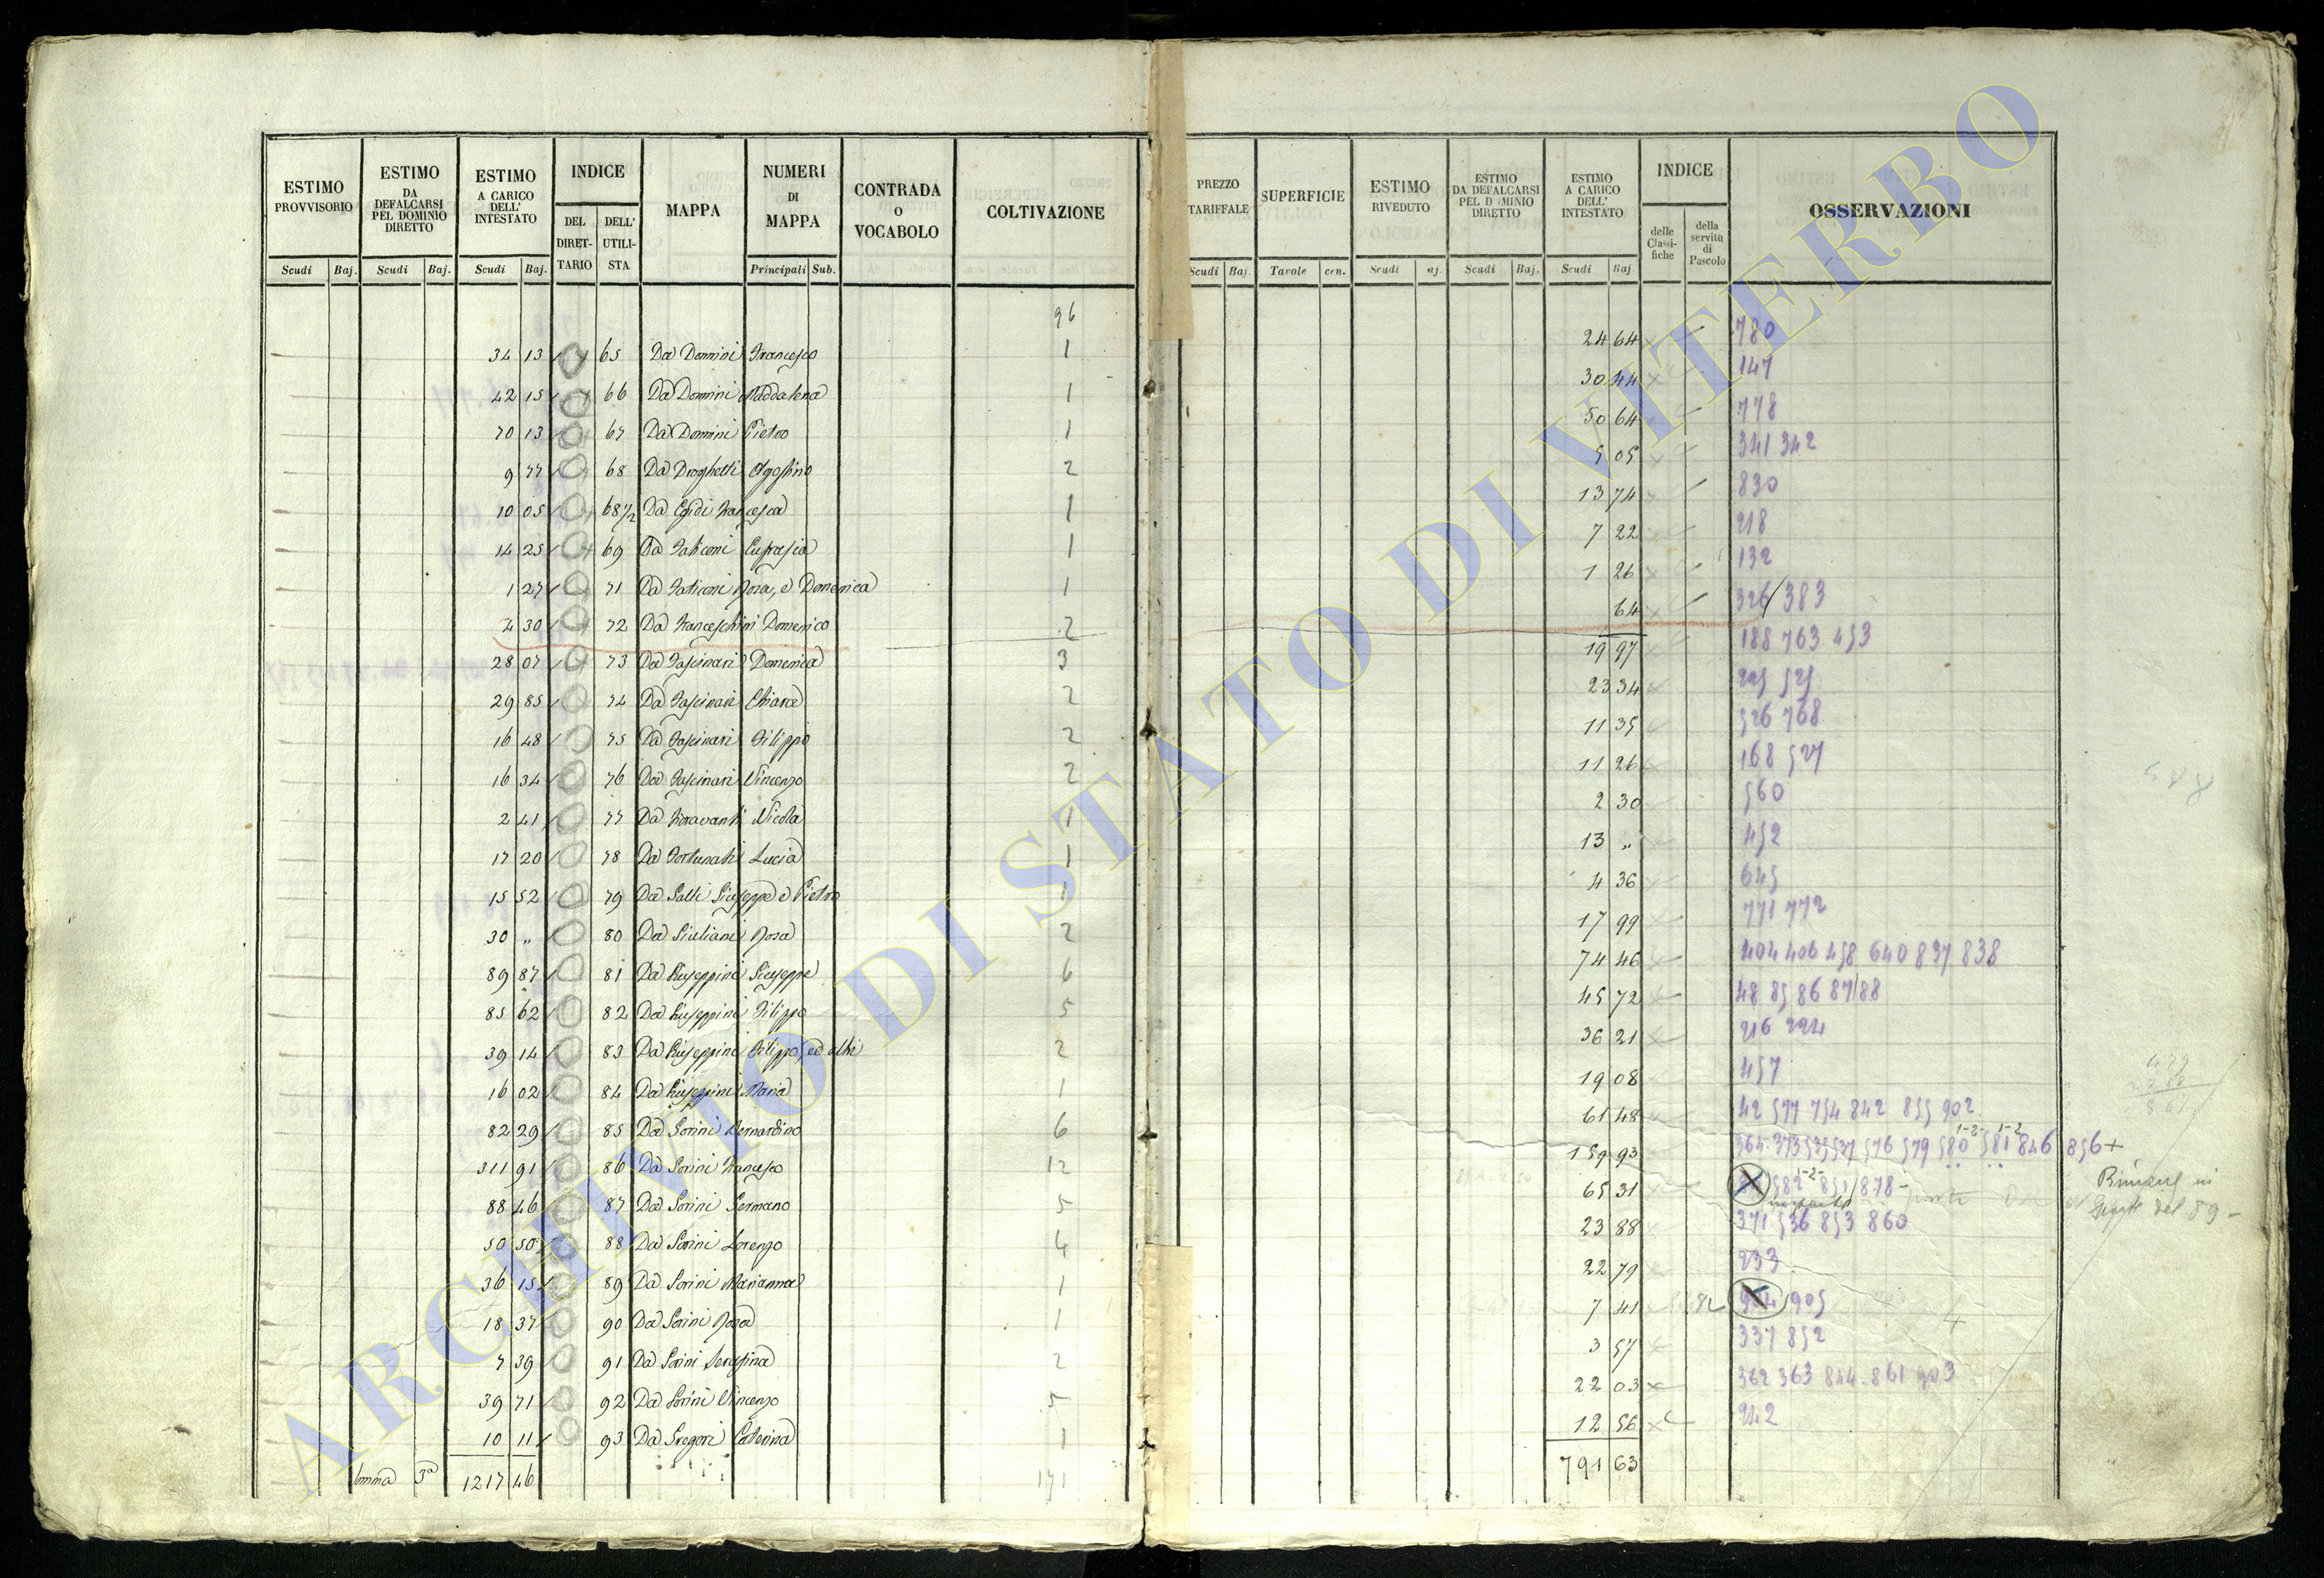 ESTIMO PROVVISORIO
Scudi Baj.
ESTIMO DA DEFALCARSI PEL DOMINIO DIRETTO
Scudi Baj.
ESTIMO A CARICO DELL' INTESTATO
Scudi Baj.
INDICE
DEL DIRETTARIO
DELL' UTILISTA
MAPPA
NUMERI DI MAPPA
Principali Sub.
CONTRADA O VOCABOLO
COLTIVAZIONE
PREZZO TARIFFALE
Scudi Baj.
SUPERFICIE
Tavole cen.
ESTIMO RIVEDUTO
Scudi aj.
ESTIMO DA DEFALCARSI PEL D MINIO DIRETTO
Scudi Baj.
ESTIMO A CARICO DELL' INTESTATO
Scudi Baj.
INDICE
delle Classifiche
della servitù di Pascolo
OSSERVAZIONI
96
34 13 65 Da Donnini Francesco 1 24 64 780
42 15 66 Da Donnini Maddalena 1 30 44 147
70 13 67 Da Donnini Pietro 1 50 64 778
9 77 68 Da Droghetti Agostino 2 5 05 341 342
10 05 68 1/2 Da Egidi Francesca 1 13 74 830
14 25 69 Da Faticoni Eufrasia 1 7 22 218
1 27 71 Da Faticoni Rosa, e Domenica 1 1 26 132
4 30 72 Da Franceschini Domenico 2 64 326 / 383
28 07 73 Da Fascinari Domenica 3 19 97 188 763 453
29 85 74 Da Fascinari Chiara 2 23 34 525
16 48 75 Da Fascinari Filippo 2 11 35 526 768
16 34 76 Da Fascinari Vincenzo 2 11 26 168 527
2 41 77 Da Fioravanti Nicola 1 2 30 560
17 20 78 Da Fortunati Lucia 1 13 „ 452
15 52 79 Da Galli Giuseppe e Pietro 1 4 36 645
30 „ 80 Da Giuliani Rosa 2 17 99 771 772
89 87 81 Da Giuseppini Giuseppe 6 74 46 404 406 458 640 837 838
85 62 82 Da Giuseppini Filippo 5 45 72 48 85 86 87/88
39 14 83 Da Giuseppini Filippo, ed altri 2 36 21 216 224
16 02 84 Da Giuseppini Maria 1 19 08 457
82 29 85 Da Gorini Bernardino 6 61 48 42 577 754 842 855 902
311 91 86 Da Gorini Francesco 12 159 93 364. 373 535 537 576 579 580 1-2- 581 1-2 846 856+
88 46 87 Da Gorini Germano 5 65 31 582 1-2- 851/878-
50 50 88 Da Gorini Lorenzo 4 23 88 371 536 853 860
36 15 89 Da Gorini Marianna 1 22 79 233
18 37 90 Da Gorini Rosa 1 7 41 904 905
7 39 91 Da Gorini Serafina 2 3 57 337 852
39 71 92 Da Gorini Vincenzo 5 22 03 362 363 844. 861 903
10 11 93 Da Gregori Caterina 1 12 56 242
Somma 3ª 1217 46 171 791 63
del 89-
ARCHIVIO DI STATO DI VITERBO